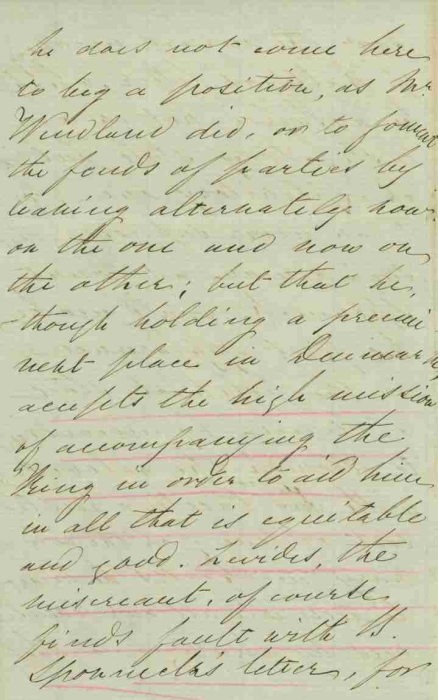 he does not come here
to beg a position, as Mr
Wendland did, or to foment
the feuds of parties by
leaning alternately now
on the one and now on
the other; but that he,
though holding a preemi
nent place in Denmark
accepts the high mission
of accompanying the
King in order to aid him
in all that is equitable
and good. Levides, the
miscreant, of course
finds fault with B.
Sponneck's letter, for